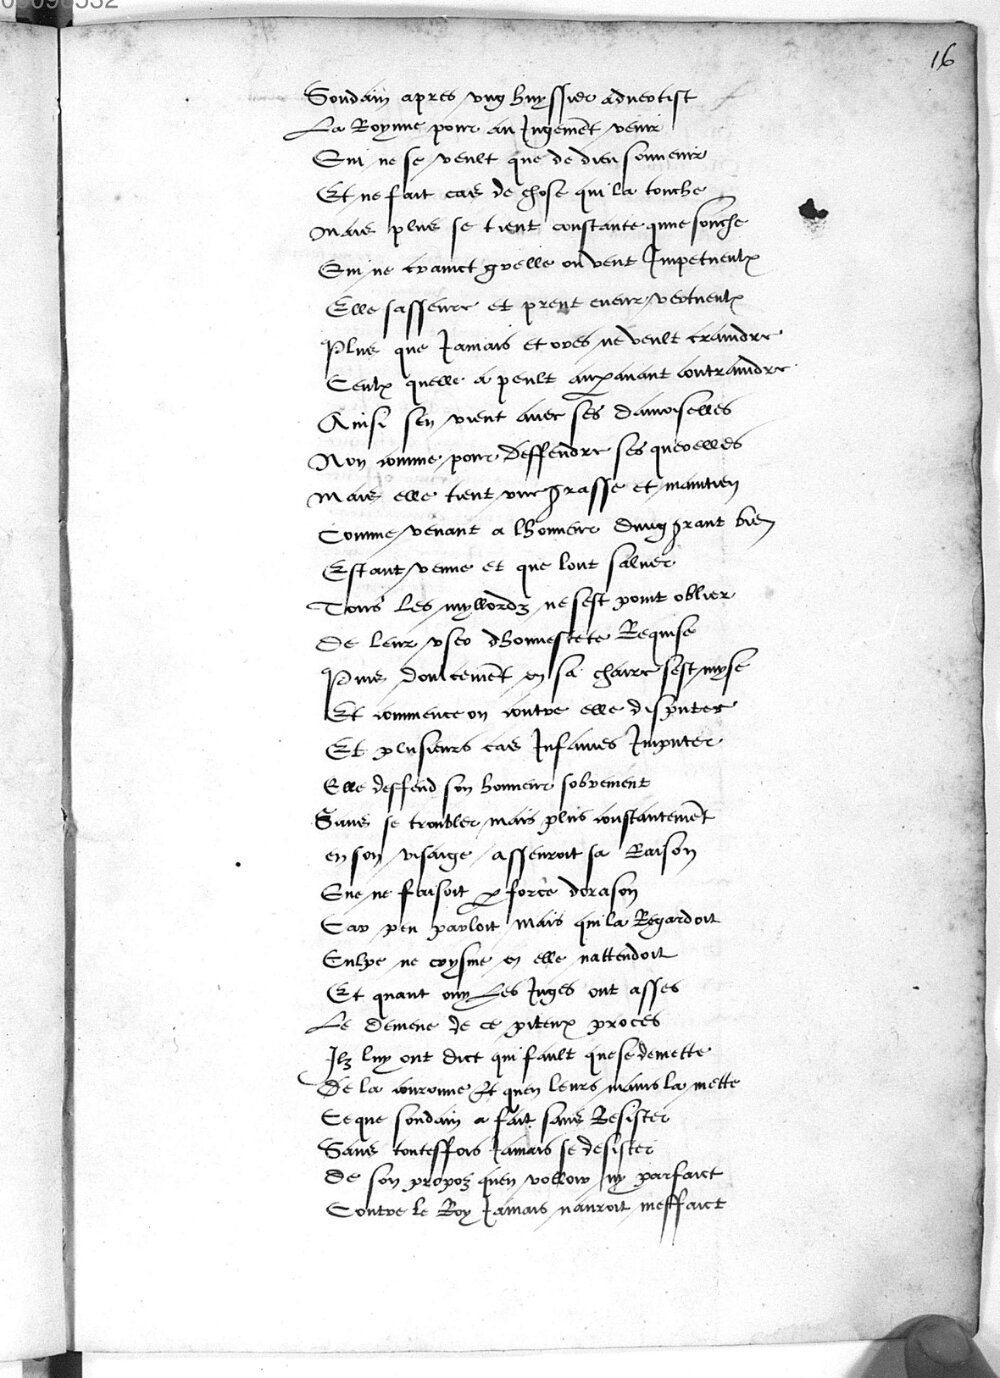 16
Soudain apres ung huyssier advertist
La Roynne pour au Jugement venir
Qui ne se veult que de dieu souvenir
Et ne fait cas de chose qui la touche
Mais plus se tient constante qune souche
Qui ne craint gresle ou vent Impetueulx
Elle sasseure et prent cueur vertueulx
Plus que Jamais et ores ne veult craindre
Ceulx quelle a peult auparavant contraindre
Ainsi sen vient avec ses damoiselles
Non comme pour deffendre ses querelles
Mais elle tient une grasse et maintien
Comme venant a lhonneur dung grant bien
Estant venue et que lont saluer
Tous les myllordz ne sest point oblier
De leur user dhonnestete Requise
Puis doulcement en sa chaire sest myse
Et commence on contre elle disputer
Et plusieurs cas Infames Imputer
Elle deffend son honneur sobrement
Sans se troubler mais plus constantement
en son visaige asseuroit sa Raison
Que ne faisoit par force dorason
Car peu parloit mais qui la Regardoit
Culpe ne crysme en elle nattendoit
Et quant ouy les Juges ont asses
Le demene de ce piteux proces
Ilz luy ont dict qui fault que se demette
De la couronne Et quen leurs mains la mette
Ce que soudain a fait sans Resister
Sans touteffois Jamais se desister
De son propoz quen vollow ny parfaict
Contre le Roy Jamais nauroit meffaict